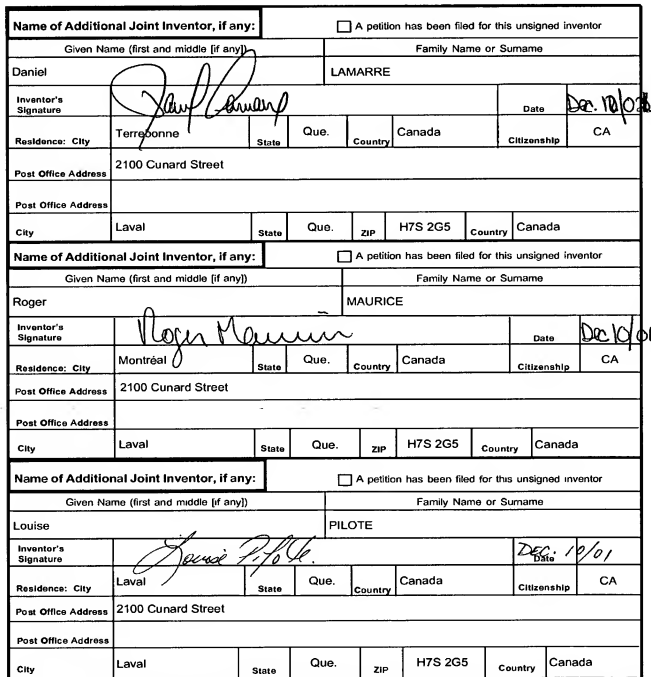 Name of Additional Joint Inventor, if any: A petition has been filed for this unsigned inventor
Given Name (first and middle [if any]) Family Name or Surname
Daniel LAMARRE
Inventor's Signature Date Dec.
Residence: City Terrebonne State Que. Country Canada Citizenship CA
Post Office Address 2100 Cunard Street
Post Office Address
City Laval State Que. ZIP H7S 2G5 Country Canada
Name of Additional Joint Inventor, if any: A petition has been filed for this unsigned inventor
Given Name (first and middle [if any]) Family Name or Surname
Roger MAURICE
Inventor's Signature Roger Maurice Date Dec 10/01
Residence: City Montréal State Que. Country Canada Citizenship CA
Post Office Address 2100 Cunard Street
Post Office Address
City Laval State Que. ZIP H7S 2G5 Country Canada
Name of Additional Joint Inventor, if any: A petition has been filed for this unsigned inventor
Given Name (first and middle [if any]) Family Name or Surname
Louise PILOTE
Inventor's Signature Louise Pilote. Date DEC. 10/01
Residence: City Laval State Que. Country Canada Citizenship CA
Post Office Address 2100 Cunard Street
Post Office Address
City Laval State Que. ZIP H7S 2G5 Country Canada